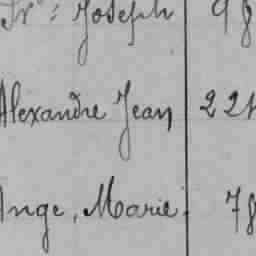 Joseph
Alexandre Jean 22
Ange, Marie 78